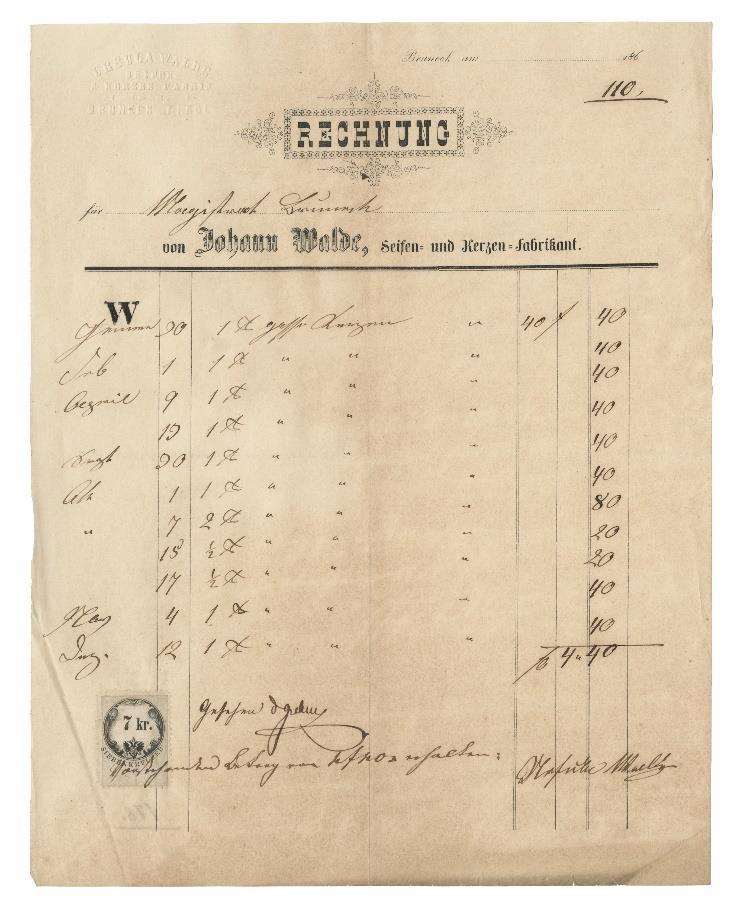 URSULA WALDE
Bruneck am 186
110.
RECHNUNG
für Magistrat Bruneck
von Johann Walde, Seifen- und Kerzen-Fabrikant.
W
20 1 ℔ Kerzen " 40 f 40
Feb 1 1 ℔ " " " 40
April 9 1 ℔ " " " 40
19 1 ℔ " " " 40
Sept 20 1 ℔ " " " 40
Okt 1 1 ℔ " " " 40
" 7 2 ℔ " " " 80
15 ½ ℔ " " " 20
17 ½ ℔ " " " 20
Nov 4 1 ℔ " " " 40
Dez. 12 1 ℔ " " " 40
4 " 40
Gesehen
7 kr.
Vorstehenden Betrag von erhalten